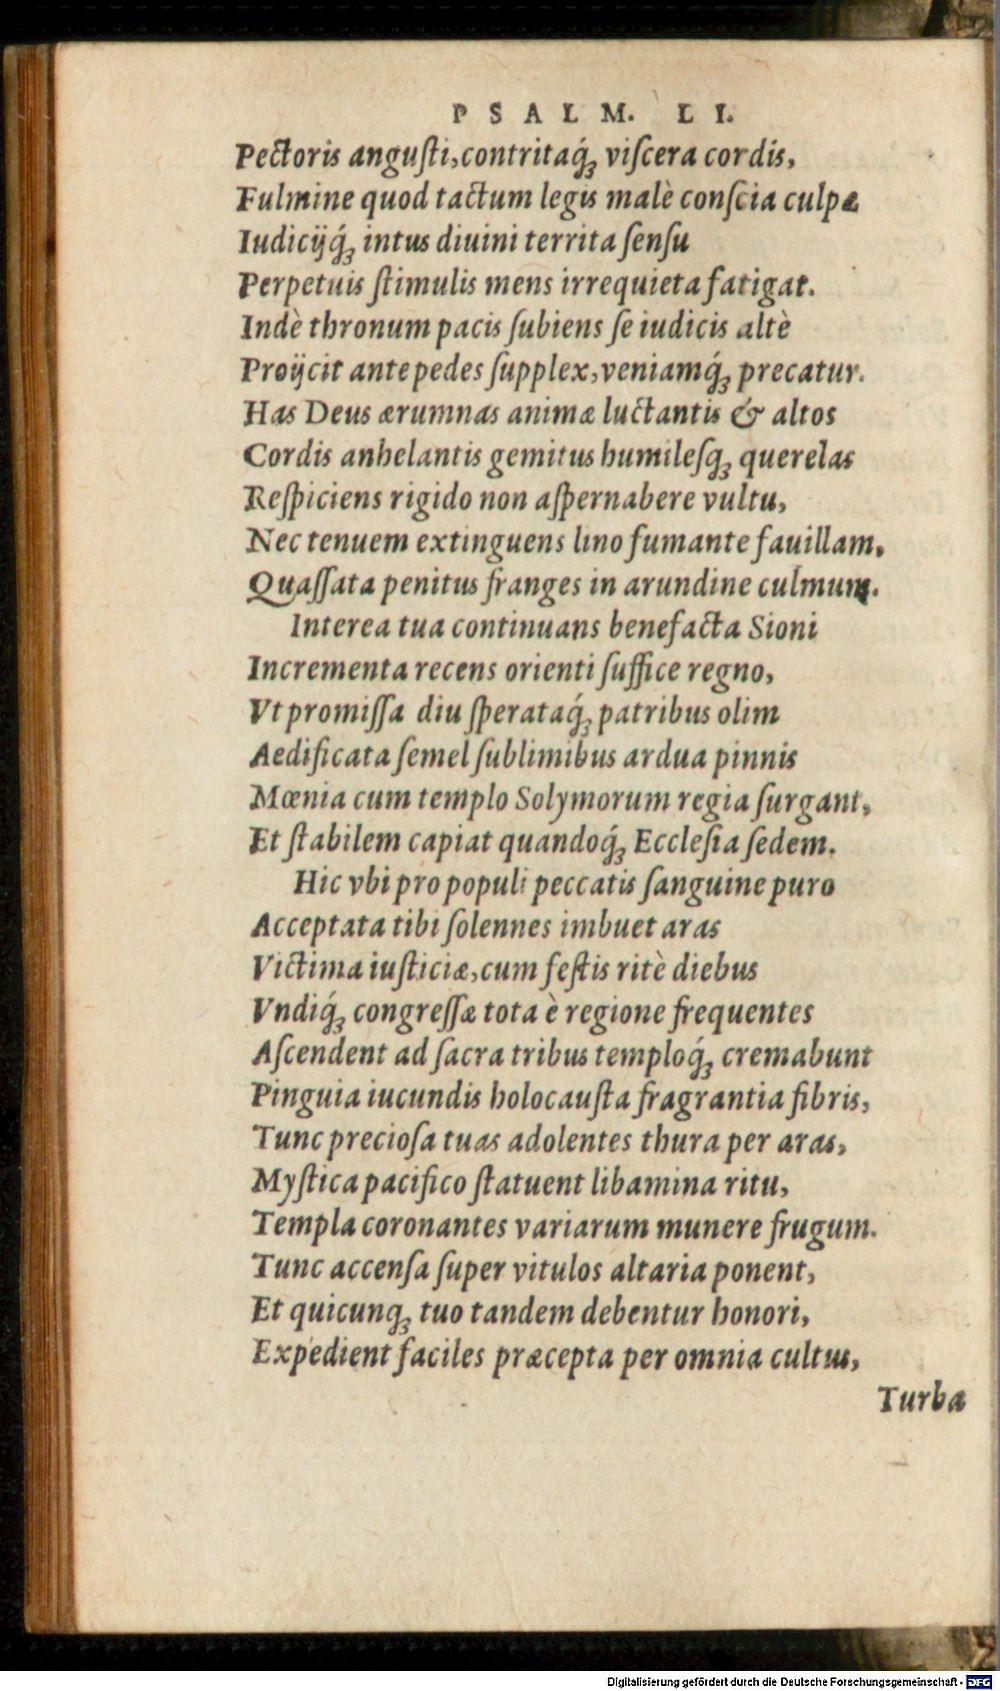 PSALM. LI.
Pectoris anguſti, contritaq́ꝫ viſcera cordis,
Fulmine quod tactum legis malè conſcia culpæ
Iudicijq́ꝫ intus diuini territa ſenſu
Perpetuis ſtimulis mens irrequieta fatigat.
Indè thronum pacis ſubiens ſe iudicis altè
Proijcit ante pedes ſupplex, veniamq́ꝫ precatur.
Has Deus ærumnas animæ luctantis & altos
Cordis anhelantis gemitus humileſqꝫ querelas
Reſpiciens rigido non aſpernabere vultu,
Nec tenuem extinguens lino fumante fauillam,
Quaſſata penitus franges in arundine culmum.
Interea tua continuans benefacta Sioni
Incrementa recens orienti ſuffice regno,
Vt promiſſa diu ſperataq́ꝫ patribus olim
Aedificata ſemel ſublimibus ardua pinnis
Mœnia cum templo Solymorum regia ſurgant,
Et ſtabilem capiat quandoq́ꝫ Eccleſia ſedem.
Hic vbi pro populi peccatis ſanguine puro
Acceptata tibi ſolennes imbuet aras
Victima iuſticiæ, cum feſtis ritè diebus
Vndiq́ꝫ congreſſæ tota è regione frequentes
Aſcendent ad ſacra tribus temploq́ꝫ cremabunt
Pinguia iucundis holocauſta fragrantia fibris,
Tunc precioſa tuas adolentes thura per aras,
Myſtica pacifico ſtatuent libamina ritu,
Templa coronantes variarum munere frugum.
Tunc accenſa ſuper vitulos altaria ponent,
Et quicunqꝫ tuo tandem debentur honori,
Expedient faciles præcepta per omnia cultus,
Turba
Digitalisierung gefördert durch die Deutsche Forschungsgemeinschaft - DFG